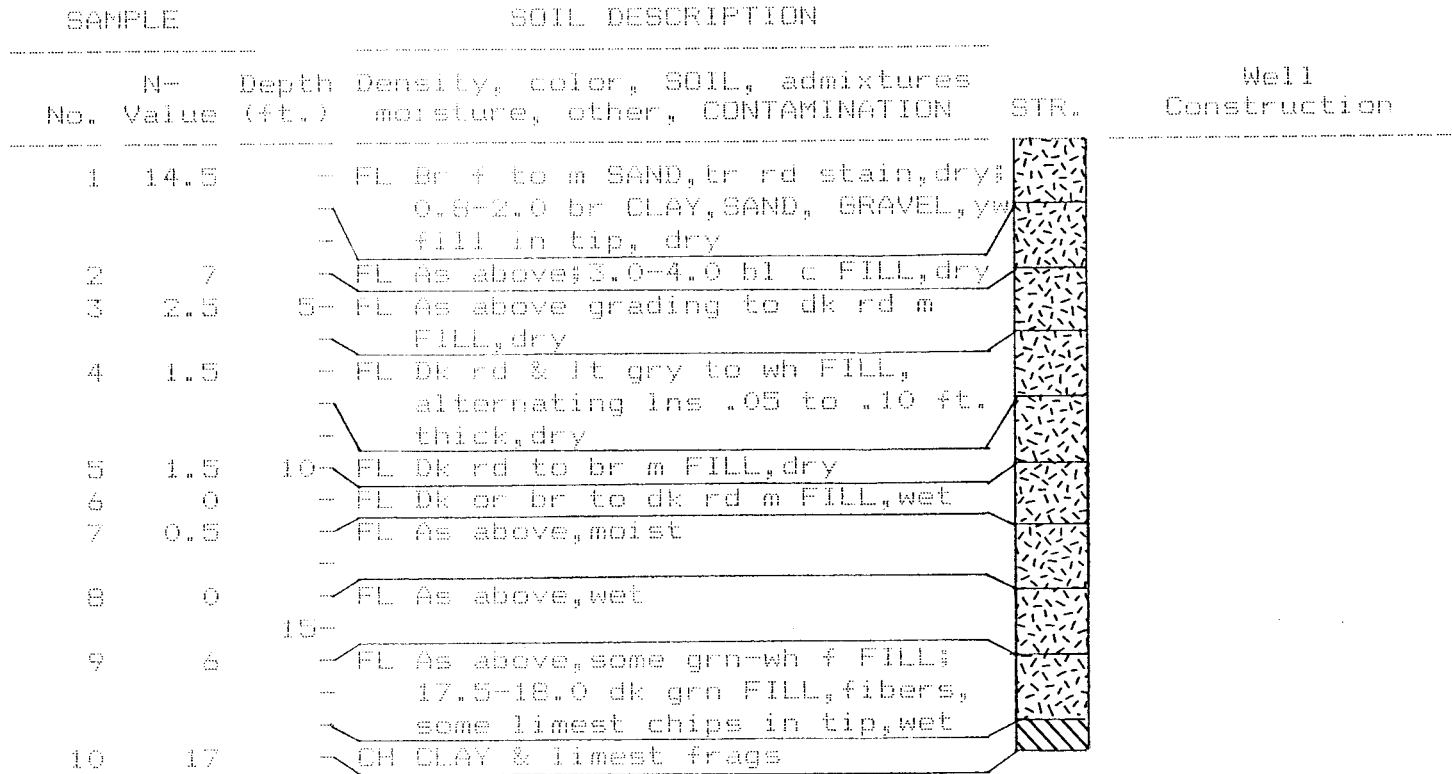 SAMPLE SOIL DESCRIPTION
N- Depth Density, color, SOIL, admixtures Well
No. Value (ft.) moisture, other, CONTAMINATION STR. Construction
1 14.5 - FL Br f to m SAND,tr rd stain,dry;
- 0.8-2.0 br CLAY,SAND, GRAVEL,yw
- fill in tip, dry
2 7 - FL As above;3.0-4.0 bl c FILL,dry
3 2.5 5- FL As above grading to dk rd m
- FILL,dry
4 1.5 - FL Dk rd & lt gry to wh FILL,
- alternating lns .05 to .10 ft.
- thick,dry
5 1.5 10- FL Dk rd to br m FILL,dry
6 0 - FL Dk or br to dk rd m FILL,wet
7 0.5 - FL As above,moist
-
8 0 - FL As above,wet
15-
9 6 - FL As above,some grn-wh f FILL;
- 17.5-18.0 dk grn FILL,fibers,
- some limest chips in tip,wet
10 17 - CH CLAY & limest frags